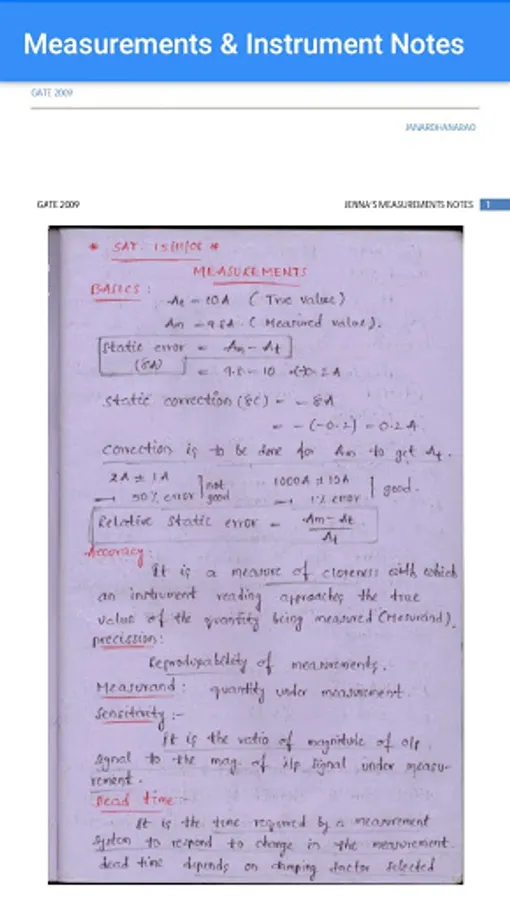 Measurements & Instrument Notes
GATE 2009
JANARDHANARAO
GATE 2009 JENNA'S MEASUREMENTS NOTES 1
* SAT. 15/11/08 *
MEASUREMENTS
BASICS :
At = 10A ( True value)
Am = 9.8A ( Measured value).
Static error = Am - At
(δA) = 9.8 - 10 = (-)0.2A
Static correction (δC) = - δA
= - (-0.2) = 0.2A.
Correction is to be done for Am to get At.
2A ± 1A not 1000A ± 10A
→ 50% error good → 1% error good.
Relative Static error = Am - At / At
Accuracy :
It is a measure of closeness with which
an instrument reading approaches the true
value of the quantity being measured (Mesurand).
precission:
Reproduability of measurements.
Measurand : quantity under measurement.
Sensitivity :-
It is the ratio of magnitude of o/p
signal to the mag. of i/p signal under measu-
rement.
Dead time :-
It is the time required by a measurement
system to respond to change in the measurement.
dead time depends on damping factor selected